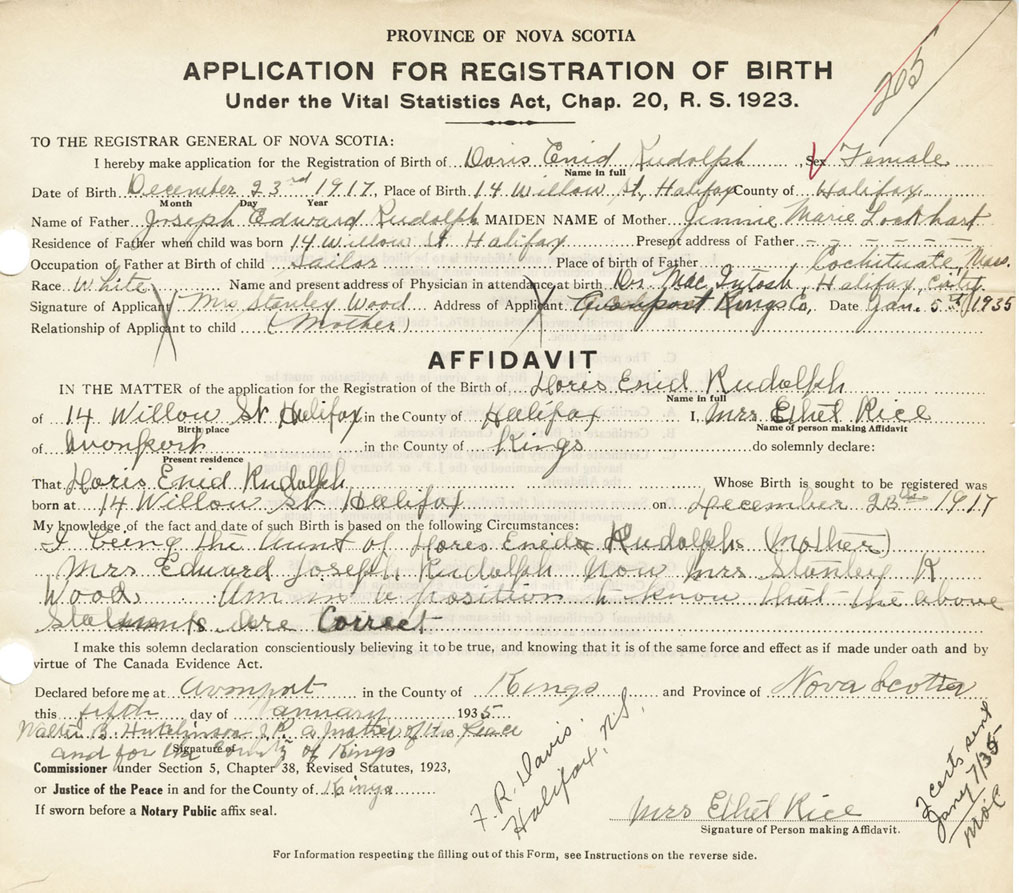 PROVINCE OF NOVA SCOTIA
205
APPLICATION FOR REGISTRATION OF BIRTH
Under the Vital Statistics Act, Chap. 20, R. S. 1923.
TO THE REGISTRAR GENERAL OF NOVA SCOTIA:
I hereby make application for the Registration of Birth of Doris Enid Rudolph, Sex Female
Name in full
Date of Birth December 23rd 1917. Place of Birth 14 Willow St, Halifax County of Halifax
Month Day Year
Name of Father Joseph Edward Rudolph MAIDEN NAME of Mother Jennie Marie Lockhart
Residence of Father when child was born 14 Willow St Halifax Present address of Father - - - - - -
Occupation of Father at Birth of child Sailor Place of birth of Father Cochituate, Mass.
Race White Name and present address of Physician in attendance at birth Dr. MacIntosh, Halifax, City
Signature of Applicant Mrs Stanley Wood Address of Applicant Avonport Kings Co, Date Jan. 5th 1935
Relationship of Applicant to child (Mother)
AFFIDAVIT
IN THE MATTER of the application for the Registration of the Birth of Doris Enid Rudolph
Name in full
of 14 Willow St Halifax in the County of Halifax I, Mrs Ethel Rice
Birth place Name of person making Affidavit
of Avonport in the County of Kings do solemnly declare:
Present residence
That Doris Enid Rudolph Whose Birth is sought to be registered was
born at 14 Willow St Halifax on December 23rd 1917
My knowledge of the fact and date of such Birth is based on the following Circumstances:
I being the Aunt of Dores Eneda Rudolph (Mother)
Mrs Edward Joseph Rudolph Now Mrs Stanley R
Wood. Am in a position to know that the above
Statements are Correct
I make this solemn declaration conscientiously believing it to be true, and knowing that it is of the same force and effect as if made under oath and by
virtue of The Canada Evidence Act.
Declared before me at Avonport in the County of Kings and Province of Nova Scotia
this fifth day of January 1935
Walter B. Hutchinson J.P. a Justice of the Peace
and for the County of Kings
Signature of
Commissioner under Section 5, Chapter 38, Revised Statutes, 1923,
or Justice of the Peace in and for the County of Kings
If sworn before a Notary Public affix seal.
F. R. Davis
Halifax, N.S.
Mrs Ethel Rice
Signature of Person making Affidavit.
2 certs sent
Jany 7/35
For Information respecting the filling out of this Form, see Instructions on the reverse side.